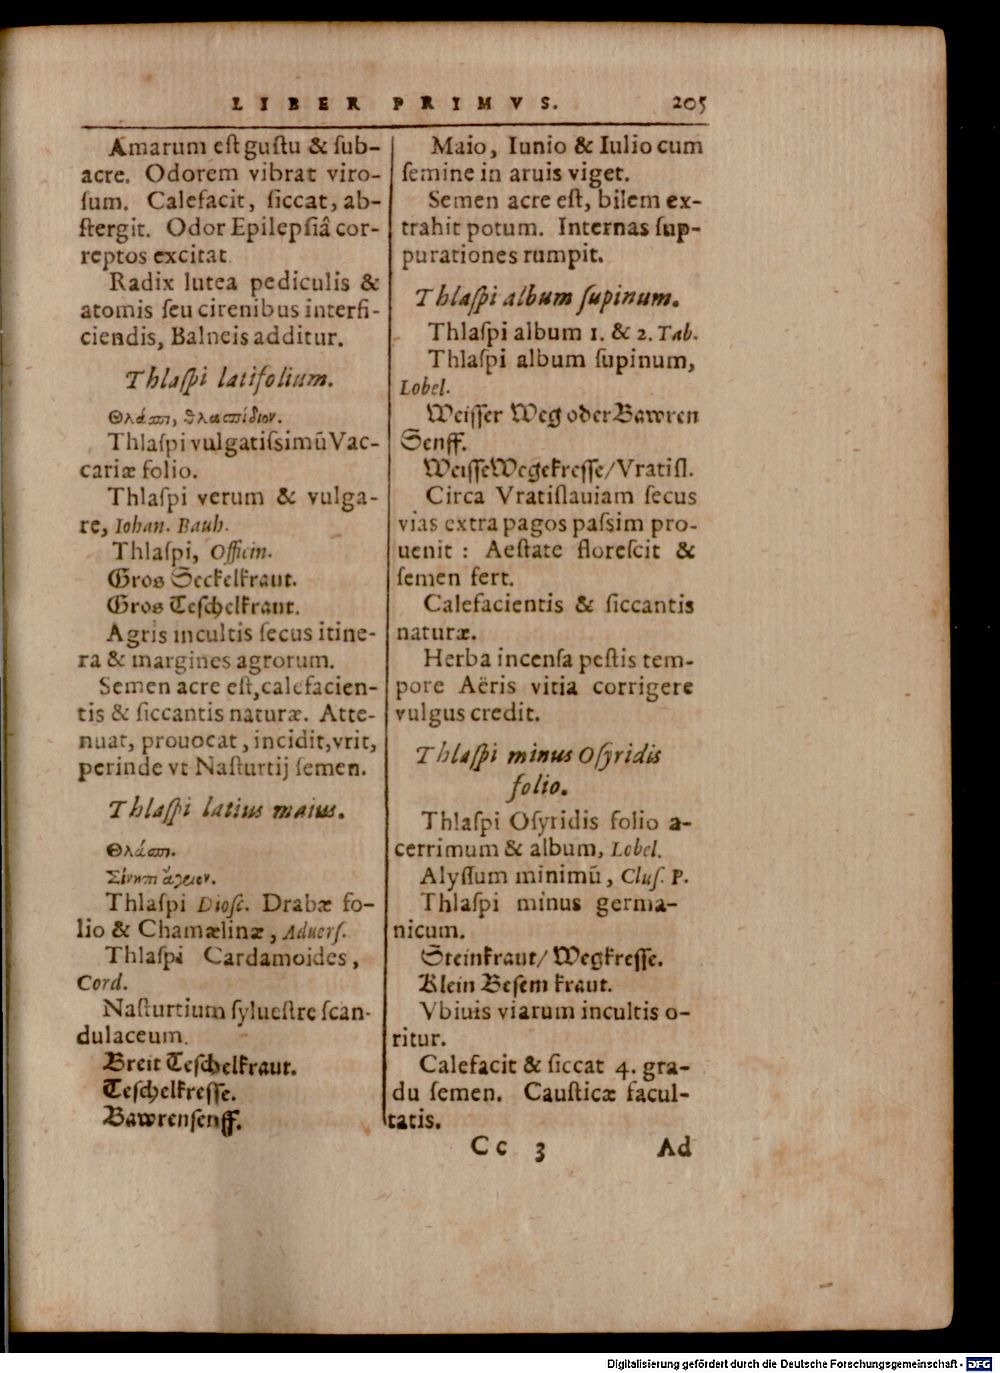 LIBER PRIMVS. 205
Amarum est gustu & sub-
acre. Odorem vibrat viro-
sum. Calefacit, siccat, ab-
stergit. Odor Epilepsiâ cor-
reptos excitat.
Radix lutea pediculis &
atomis seu cirenibus interfi-
ciendis, Balneis additur.
Thlaspi latifolium.
Θλάσπι, θλασπίδιον.
Thlaspi vulgatissimũ Vac-
cariæ folio.
Thlaspi verum & vulga-
re, Iohan. Bauh.
Thlaspi, Officin.
Gros Seckelkraut.
Gros Teschelkraut.
Agris incultis secus itine-
ra & margines agrorum.
Semen acre est, calefacien-
tis & siccantis naturæ. Atte-
nuat, prouocat, incidit, vrit,
perinde vt Nasturtij semen.
Thlaspi latius maius.
Θλάσπι.
Σίνηπι ἄγριον.
Thlaspi Diosc. Drabæ fo-
lio & Chamælinæ, Aduers.
Thlaspi Cardamoides,
Cord.
Nasturtium syluestre scan-
dulaceum.
Breit Teschelkraut.
Teschelkresse.
Bawrensenff.
Maio, Iunio & Iulio cum
semine in aruis viget.
Semen acre est, bilem ex-
trahit potum. Internas sup-
purationes rumpit.
Thlaspi album supinum.
Thlaspi album 1. & 2. Tab.
Thlaspi album supinum,
Lobel.
Weisser Weg oder Bawren
Senff.
Weisse Wegekresse/ Vratisl.
Circa Vratislauiam secus
vias extra pagos passim pro-
uenit: Aestate florescit &
semen fert.
Calefacientis & siccantis
naturæ.
Herba incensa pestis tem-
pore Aëris vitia corrigere
vulgus credit.
Thlaspi minus Osyridis
folio.
Thlaspi Osyridis folio a-
cerrimum & album, Lobel.
Alyssum minimũ, Clus. P.
Thlaspi minus germa-
nicum.
Steinkraut/ Wegkresse.
Klein Besem kraut.
Vbiuis viarum incultis o-
ritur.
Calefacit & siccat 4. gra-
du semen. Causticæ facul-
tatis.
Cc 3 Ad
Digitalisierung gefördert durch die Deutsche Forschungsgemeinschaft - DFG